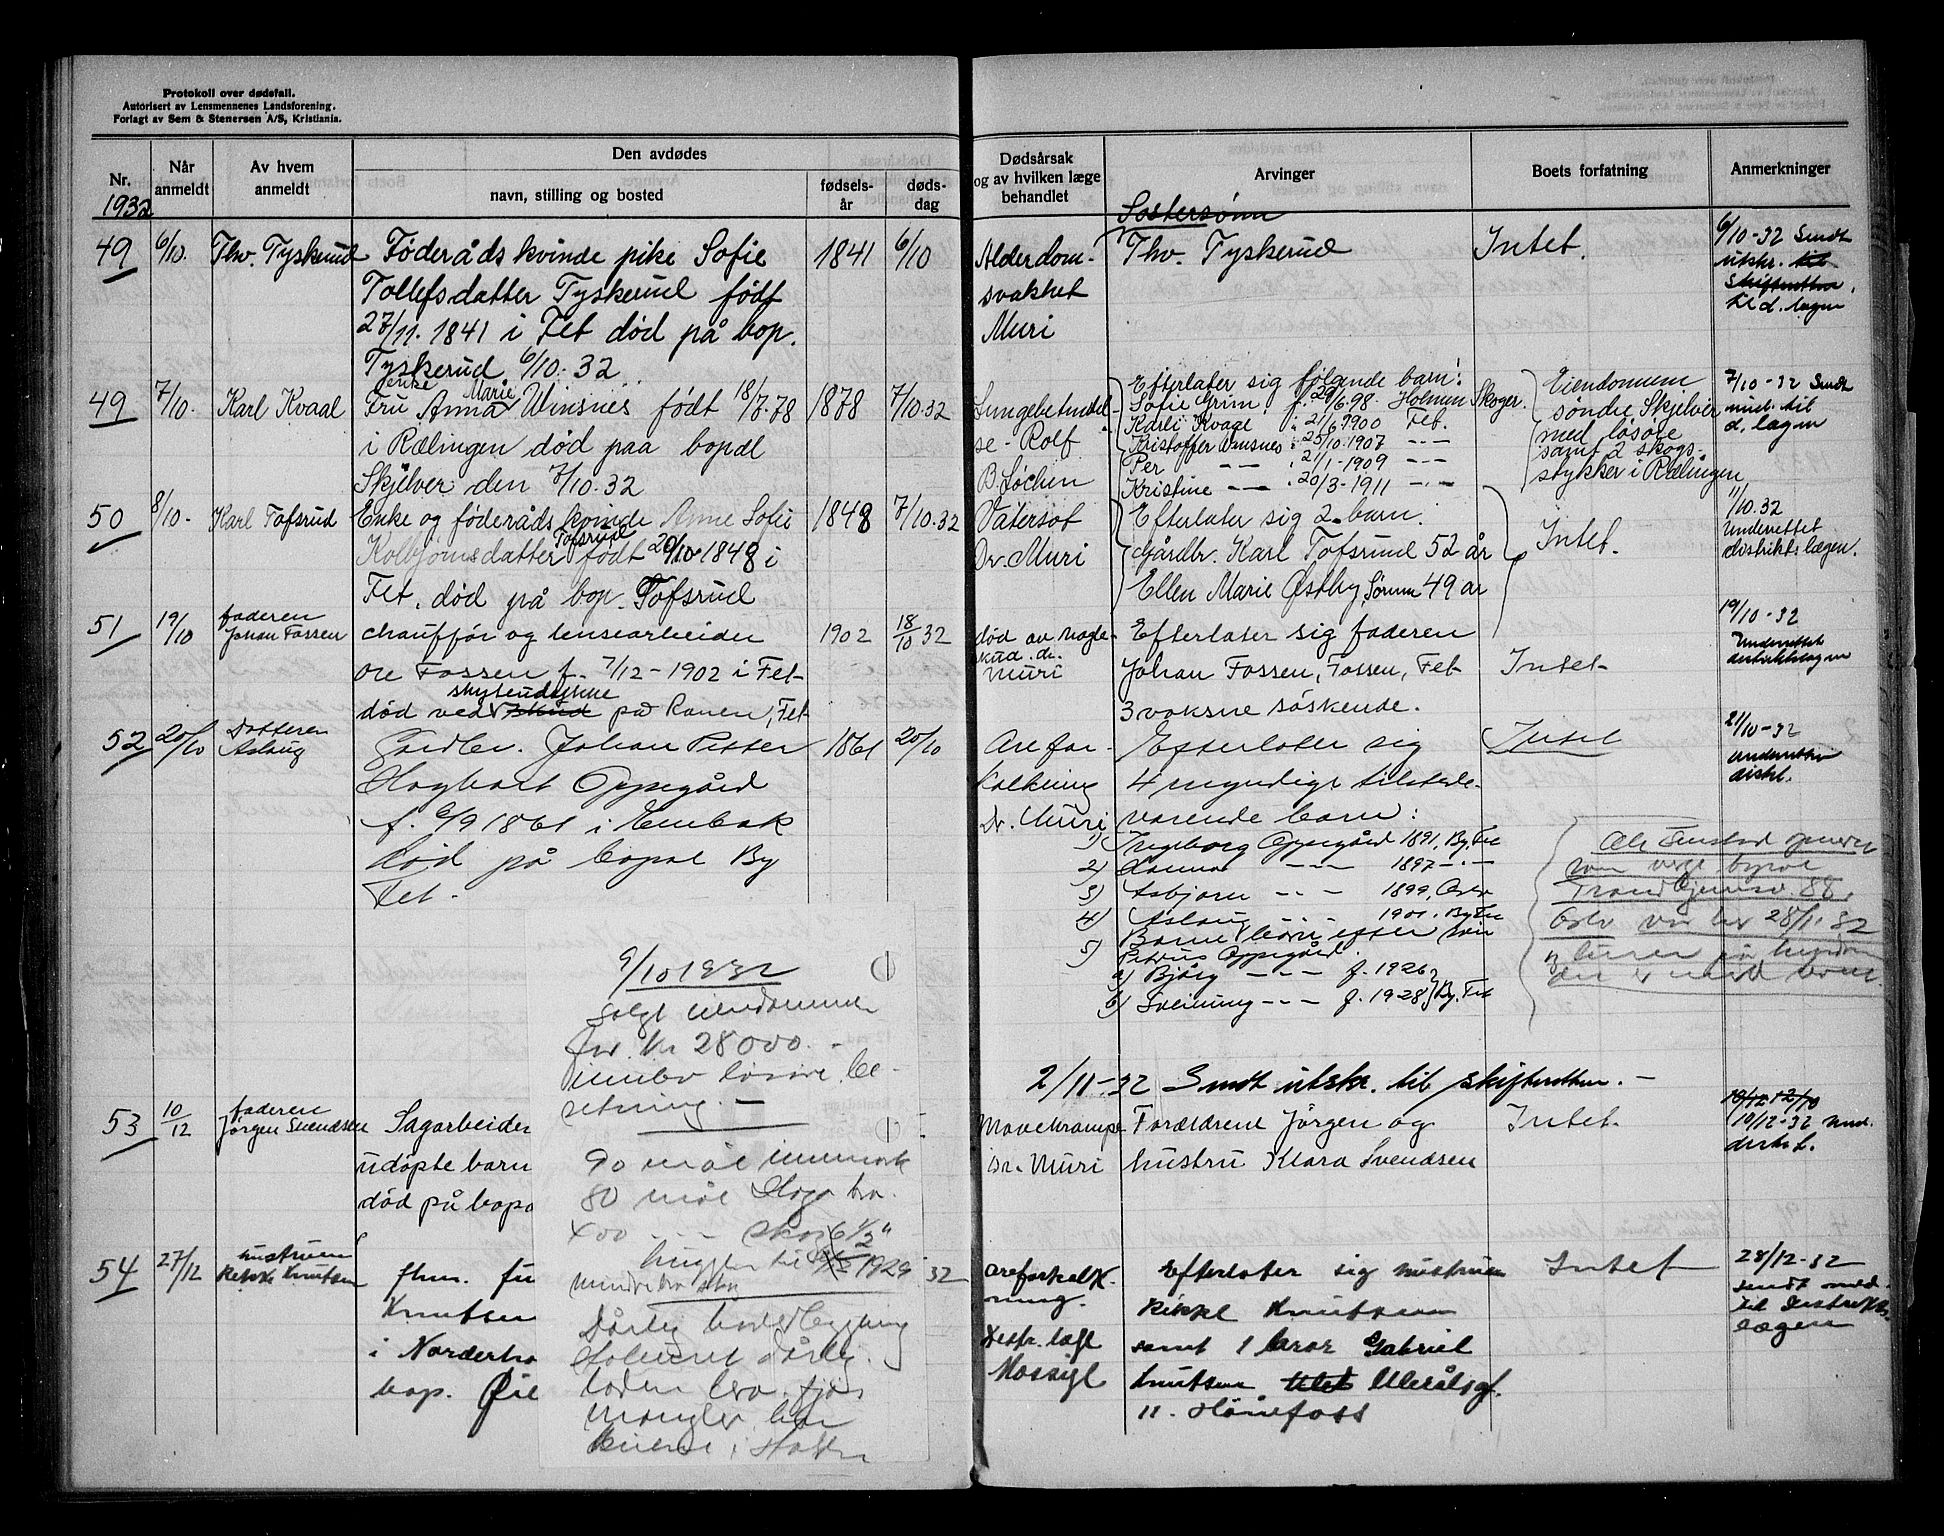 Protokoll over dødsfall.
Autorisert av Lensmennenes Landsforening.
Forlagt av Sem & Stenersen A/S, Kristiania.
Nr.
1932
Når anmeldt
Av hvem anmeldt
Den avdødes
navn, stilling og bosted
fødsels-år
døds-dag
Dødsårsak og av hvilken læge behandlet
Arvinger
Boets forfatning
Anmerkninger
49
6/10.
Thv. Tyskerud
Føderådskvinde pike Sofie
Tollefsdatter Tyskerud født
27/11. 1841 i Fet død på bop.
Tyskerud 6/10. 32
1841
6/10
Alderdom-
svakhet
Muri
Søstersønn
Thv. Tyskerud
Intet.
6/10-32 Sendt
utskr. til
Skifteretten.
til d. lægen
49
7/10.
Karl Kvaal
enke Marie
Fru Anna Winsnes født 18/7.78
i Rælingen død paa bopæl
Skjelver den 7/10.32
1878
7/10.32
Lungebetændel-
se - Rolf
B. Løchen
Efterlater sig følgende barn:
Sofie Grim, f. 29/6.98. Holmen Skoger.
Karli Kvaal " 21/6 1900 Fet.
Kristoffer Winsnes " 25/10.1907 - - -
Per - - - " 21/1-1909 - - -
Kristine - - - " 20/3-1911 - - -
Eiendommen
søndre Skjelver
med løsøre
samt 2 skogs-
stykker i Rælingen
7/10-32 Sendt
med. til
d. lægen
50
8/10.
Karl Tofsrud
Enke og føderådskvinde Anne Sofie
Kolbjørnsdatter Tofsrud født 20/10-1848 i
Fet, død på bop. Tofsrud
1848
7/10.32
Vatersot
Dr. Muri
Efterlater sig 2 barn:
Gårdbr. Karl Tofsrud 52 år
Ellen Marie Østby, Sørum 49 år
Intet.
11/10.32
Underrettet
distriktslægen.
51
19/10
faderen
Johan Fossen
chauffør og lensearbeider
Ole Fossen f. 7/12-1902 i Fet-
skytеulykke
død ved skud på Ranen, Fet-
1902
18/10 32
død av hagle-
skud. dr.
Muri
Efterlater sig faderen
Johan Fossen, Fossen, Fet-
3 voksne søskende.
Intet-
19/10-32
Underrettet
distriktlægen
52
20/10
Datteren
Aslaug
Gårdbr. Johan Petter
Hagbart Oppegård
f. 6/9 1861 i Enebak
død på bopæl By
Fet.
1861
20/10
Årefor-
kalkning
Dr. Muri
Efterlater sig
4 myndige tilstede-
værende barn:
1) Ingeborg Oppegård 1891, By, Fet
2) - - - 1897 - - -
3) Asbjørn - - - 1899, Oslo
4) Aslaug - - - 1901. By Fet
5) Barnebarn efter søn
Petrus Oppegård.
a) Bjørg - - - f. 1926
b) Sveinung - - - f. 1928 } By, Fet
Intet
21/10-32
underrettet
distl.
Ole
som verge
88,
Oslo var her 28/11 32
9/10 1932
solgt eiendommen
for kr 28000.-
innbo løsøre be-
setning. -
90 mål innmark
80 mål
400 - - - skog 6 1/2"
hugget til 1929
Dårlig
dårlig.
mangler
2/11-32 Sendt utskr. til skifteretten. -
53
10/12
faderen
Jørgen Svendsen
Sagarbeider
udøpte barn
død på bopæ
Mavekrampe
Dr. Muri
Forældrene Jørgen og
hustru Klara Svendsen
Intet.
10/12-32 und.
distr. L.
54
27/12
hustruen
Rikke Knutsen
fhm. fu
Knutsen
i Norderho
bop. Øie
32
Åreforkalk-
ning.
Distr. læge
Mossige
Efterlater sig hustruen
Rikke Knutsen
samt 1 bror Gabriel
Knutsen Ullerålsgt.
11. Hønefoss
Intet
28/12-32
sendt med.
til Distrikts-
lægen